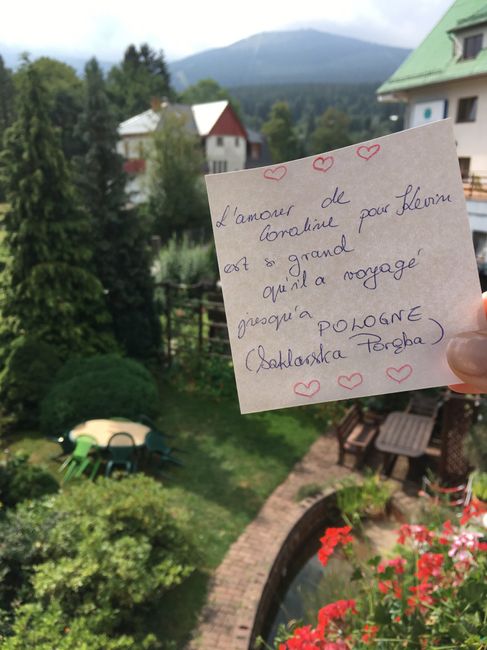 L'amour de
Coraline pour Kevin
est si grand
qu'il a voyagé
jusqu'a
POLOGNE
(Saklarska Poręba)